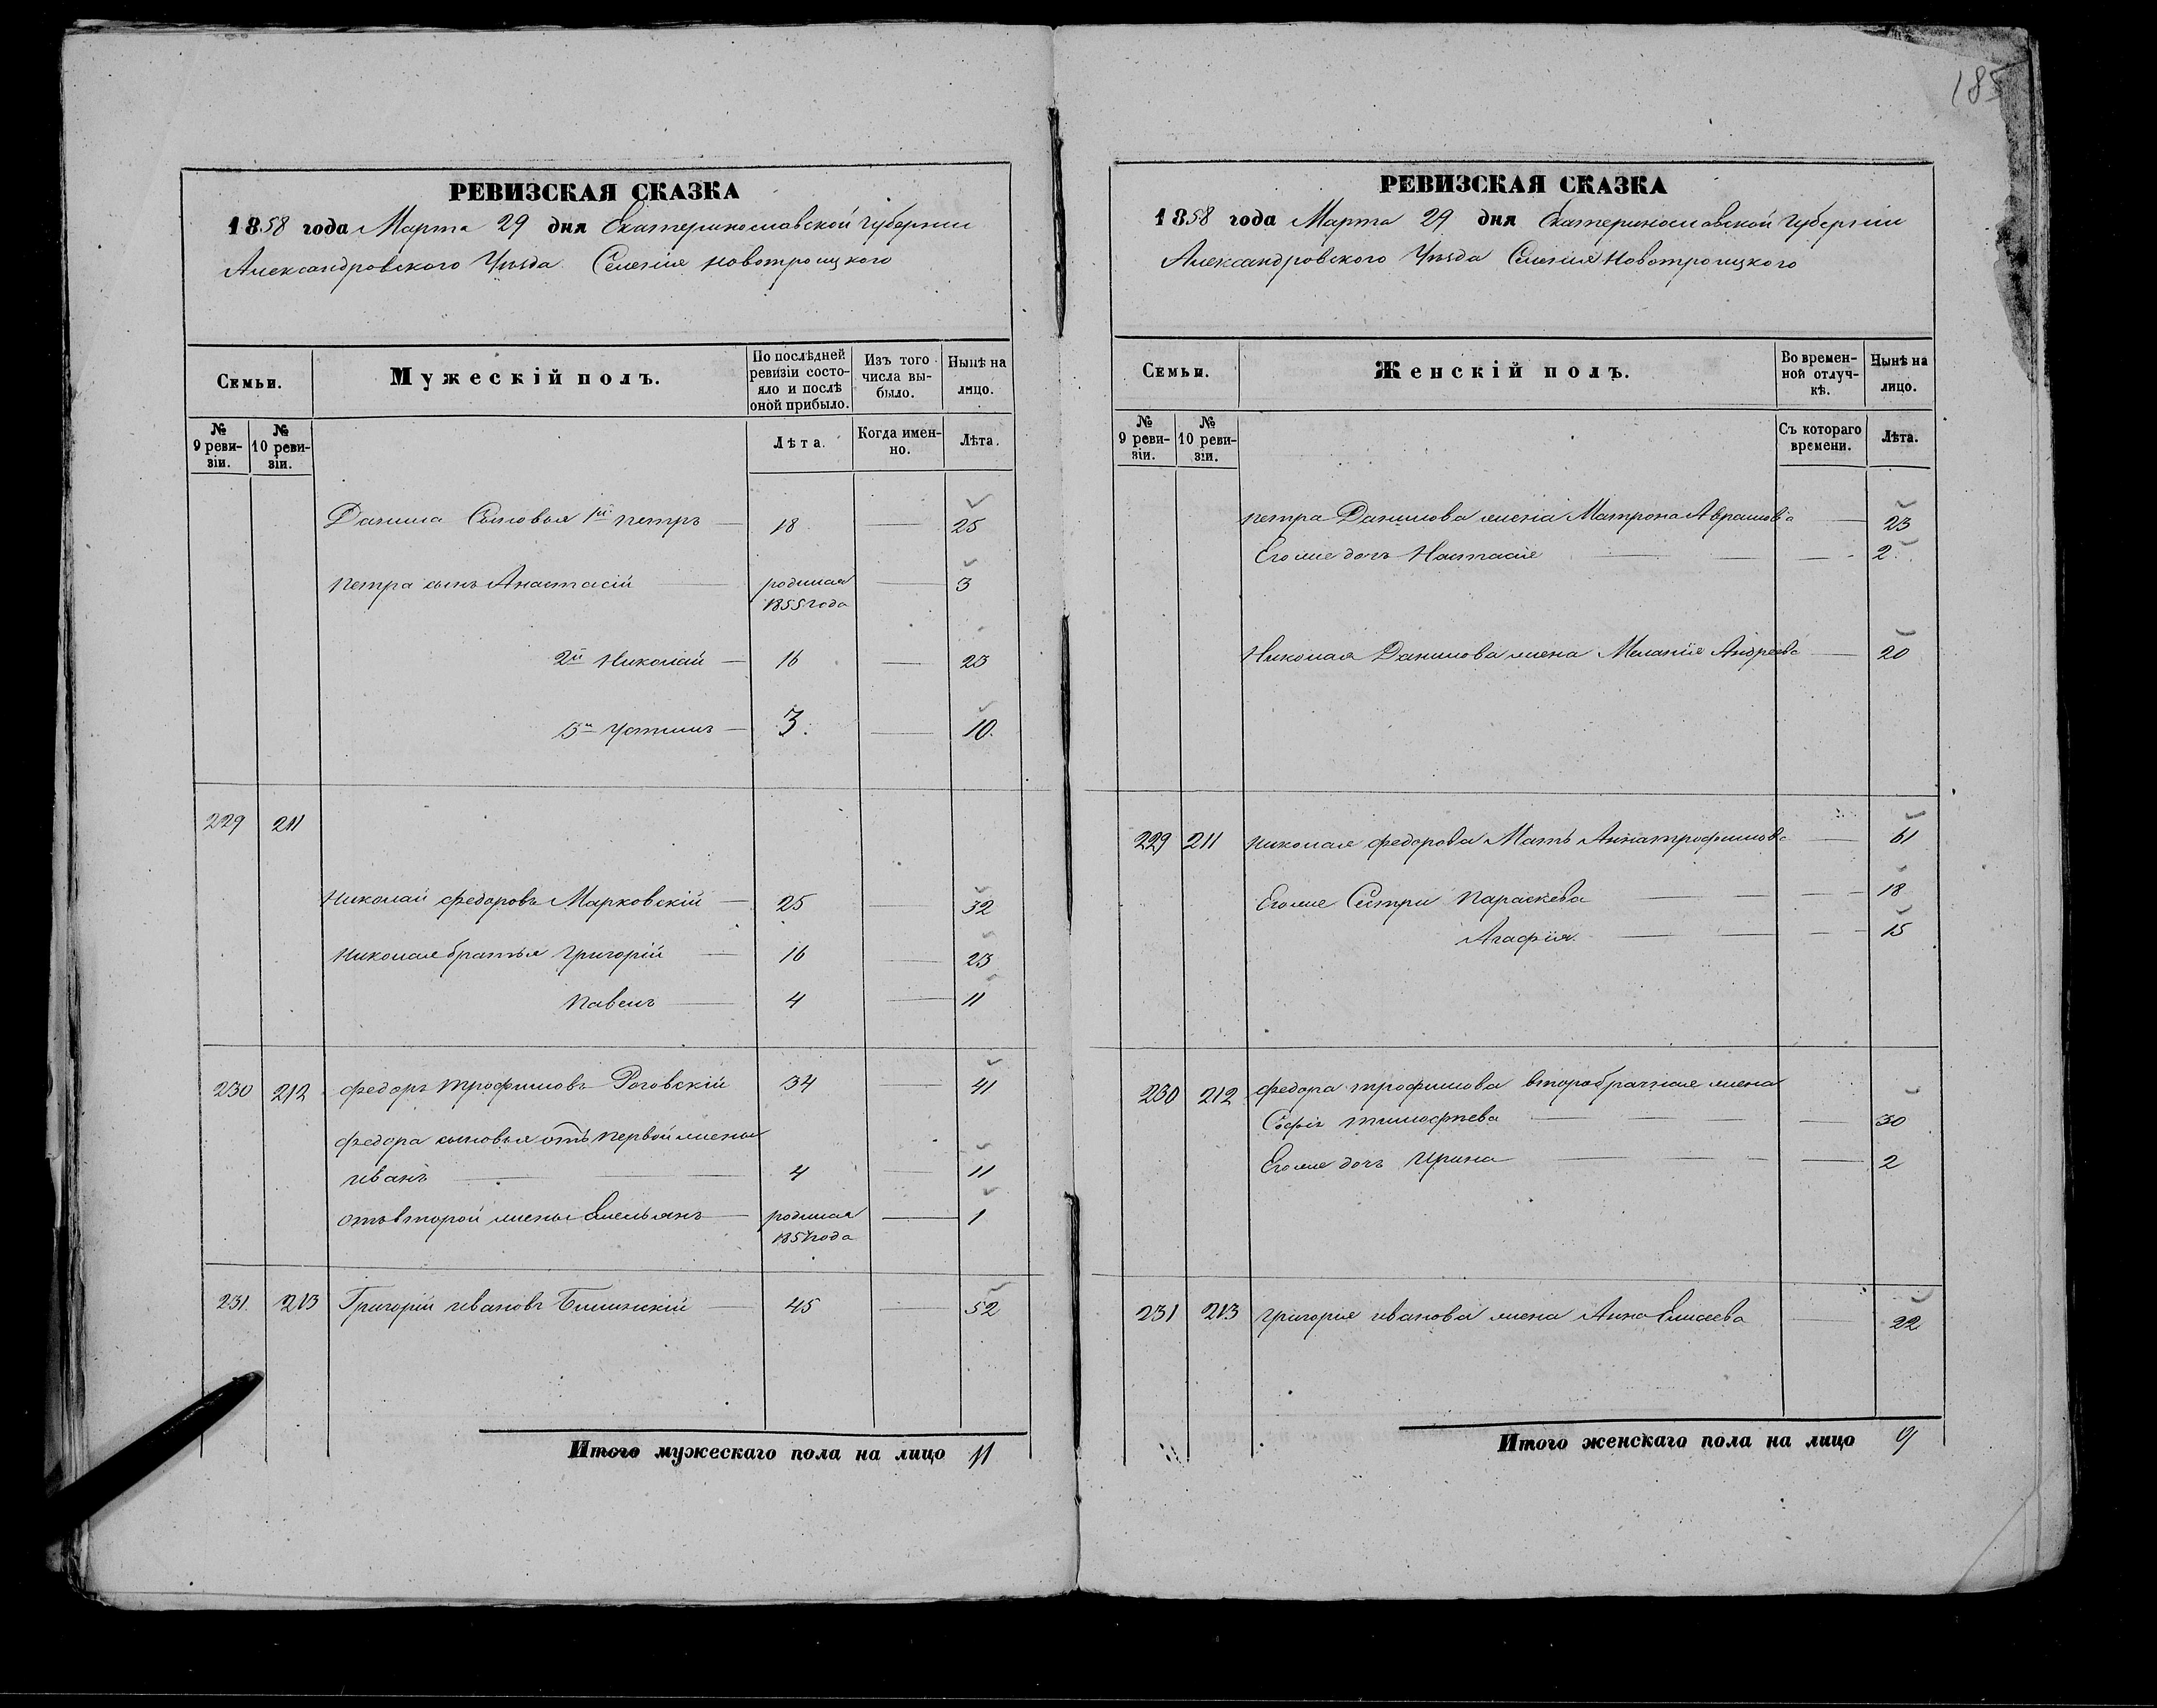 185
РЕВИЗСКАЯ СКАЗКА
1858 года Марта 29 дня Екатеринославской губернии
Александровского Уѣзда Селенія Новотроицкого
Семьи.
Мужескій полъ.
По послѣдней ревизіи состояло и послѣ оной прибыло.
Изъ того числа выбыло.
Нынѣ на лицо.
№ 9 ревизіи.
№ 10 ревизіи.
Лѣта.
Когда именно.
Лѣта.
Данила Сыновья 1й петръ — 18 — 25
Петра сынъ Анастасій — родился 1855 года — 3
2й Николай — 16 — 23
3й Устинъ — 3. — 10.
229 211
Николай федоровъ Марковскій — 25 — 32
Николая братья Григорій — 16 — 23
Павелъ — 4 — 11
230 212 федоръ трофимовъ Роговскій 34 — 41
федора сыновья отъ первой жены
иванъ — 4 — 11
отъ второй жены Емельянъ — родился 1857 года — 1
231. 213 Григорій ивановъ Билинскій — 45 — 52
Итого мужескаго пола на лицо 11
РЕВИЗСКАЯ СКАЗКА
1858 года Марта 29 дня Екатеринославской Губерніи
Александровского Уѣзда Селенія Новотроицкого
Семьи.
Женскій полъ.
Во временной отлучкѣ.
Нынѣ на лицо.
№ 9 ревизіи.
№ 10 ревизіи.
Съ котораго времени.
Лѣта.
петра Данилова жена Матрона Аврамова — 23
Его же дочь Настасія — 2.
Николая Данилова жена Меланія Андреева — 20
229 211 Николая федорова Мать Анна трофимова — 61
Его же Сестри Параскева — 18
Агафія. — 15
230 212 федора трофимова второбрачная жена
Софія тимофѣева — 30
Его же дочь Ирина — 2
231 213 Григорія иванова жена Анна Елисеева — 22
Итого женскаго пола на лицо 9